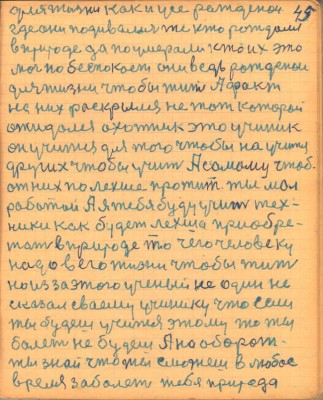 45
для жизни как и все рожденои
где они подивалися те кто рождали
в природе да поумерали кто их это
мог побеспокоет они ведь рожденои
для жизни чтобы жит А факт
на них раскрылся не тот которой
ожидался охотник это ученик
он учится для того чтобы научится
других чтобы учит А самому чтоб.
от них полехше прожит. ты мол
работой А я тебя буду учит тех-
ники как будет лехша приобре-
тат в природе то чего человеку
надо в его жизни чтобы жит
но из за этого ученый не один не
сказал сваему ученику что если
ты будеш учится этому то ты
болет не будеш А наоборот-
ты знай что ты сможеш в любое
время заболет тебя природа